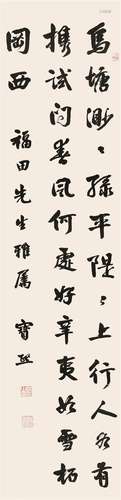 烏塘渺〻綠平隄〻上行人各有
攜試問春風何處好辛夷如雪柘
岡西
福田先生雅屬 寶熙